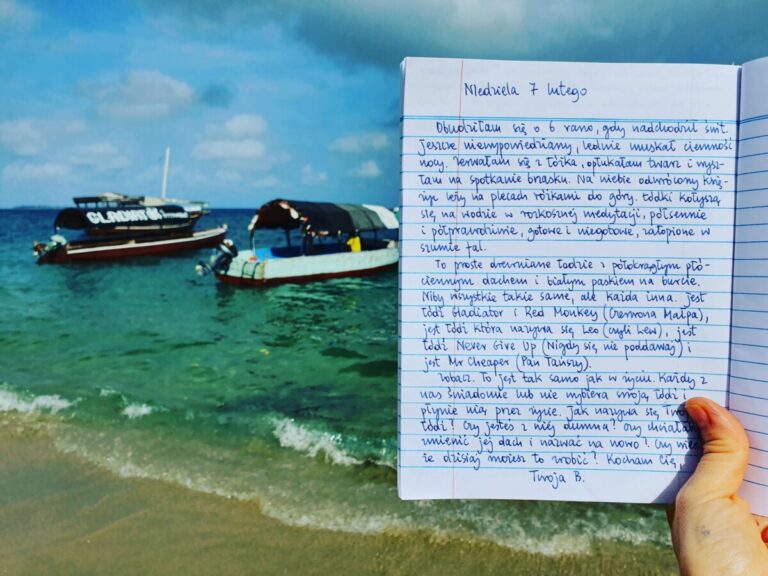 GLADIAT
Niedziela 7 lutego
Obudziłam się o 6 rano, gdy nadchodził świt.
Jeszcze niewypowiedziany, ledwie muskał ciemność
nocy. Zerwałam się z łóżka, opłukałam twarz i wysz-
łam na spotkanie brzasku. Na niebie odwrócony księ-
życ leży na plecach różkami do góry. Łódki kołyszą
się na wodzie w rozkosznej medytacji, półsennie
i półprawdziwie, gotowe i niegotowe, zatopione w
szumie fal.
To proste drewniane łodzie z półokrągłym płó-
ciennym dachem i białym paskiem na burcie.
Niby wszystkie takie same, ale każda inna. Jest
łódź Gladiator i Red Monkey (Czerwona Małpa),
jest łódź która nazywa się Leo (czyli Lew), jest
łódź Never Give Up (Nigdy się nie poddawaj) i
jest Mr Cheaper (Pan Tańszy).
Zobacz. To jest tak samo jak w życiu. Każdy z
nas świadomie lub nie wybiera swoją łódź i
płynie nią przez życie. Jak nazywa się
łódź? Czy jesteś z niej dumna? Czy
zmienić jej dach i nazwać na nowo? Czy
że dzisiaj możesz to zrobić? Kocham Cię,
Twoja B.